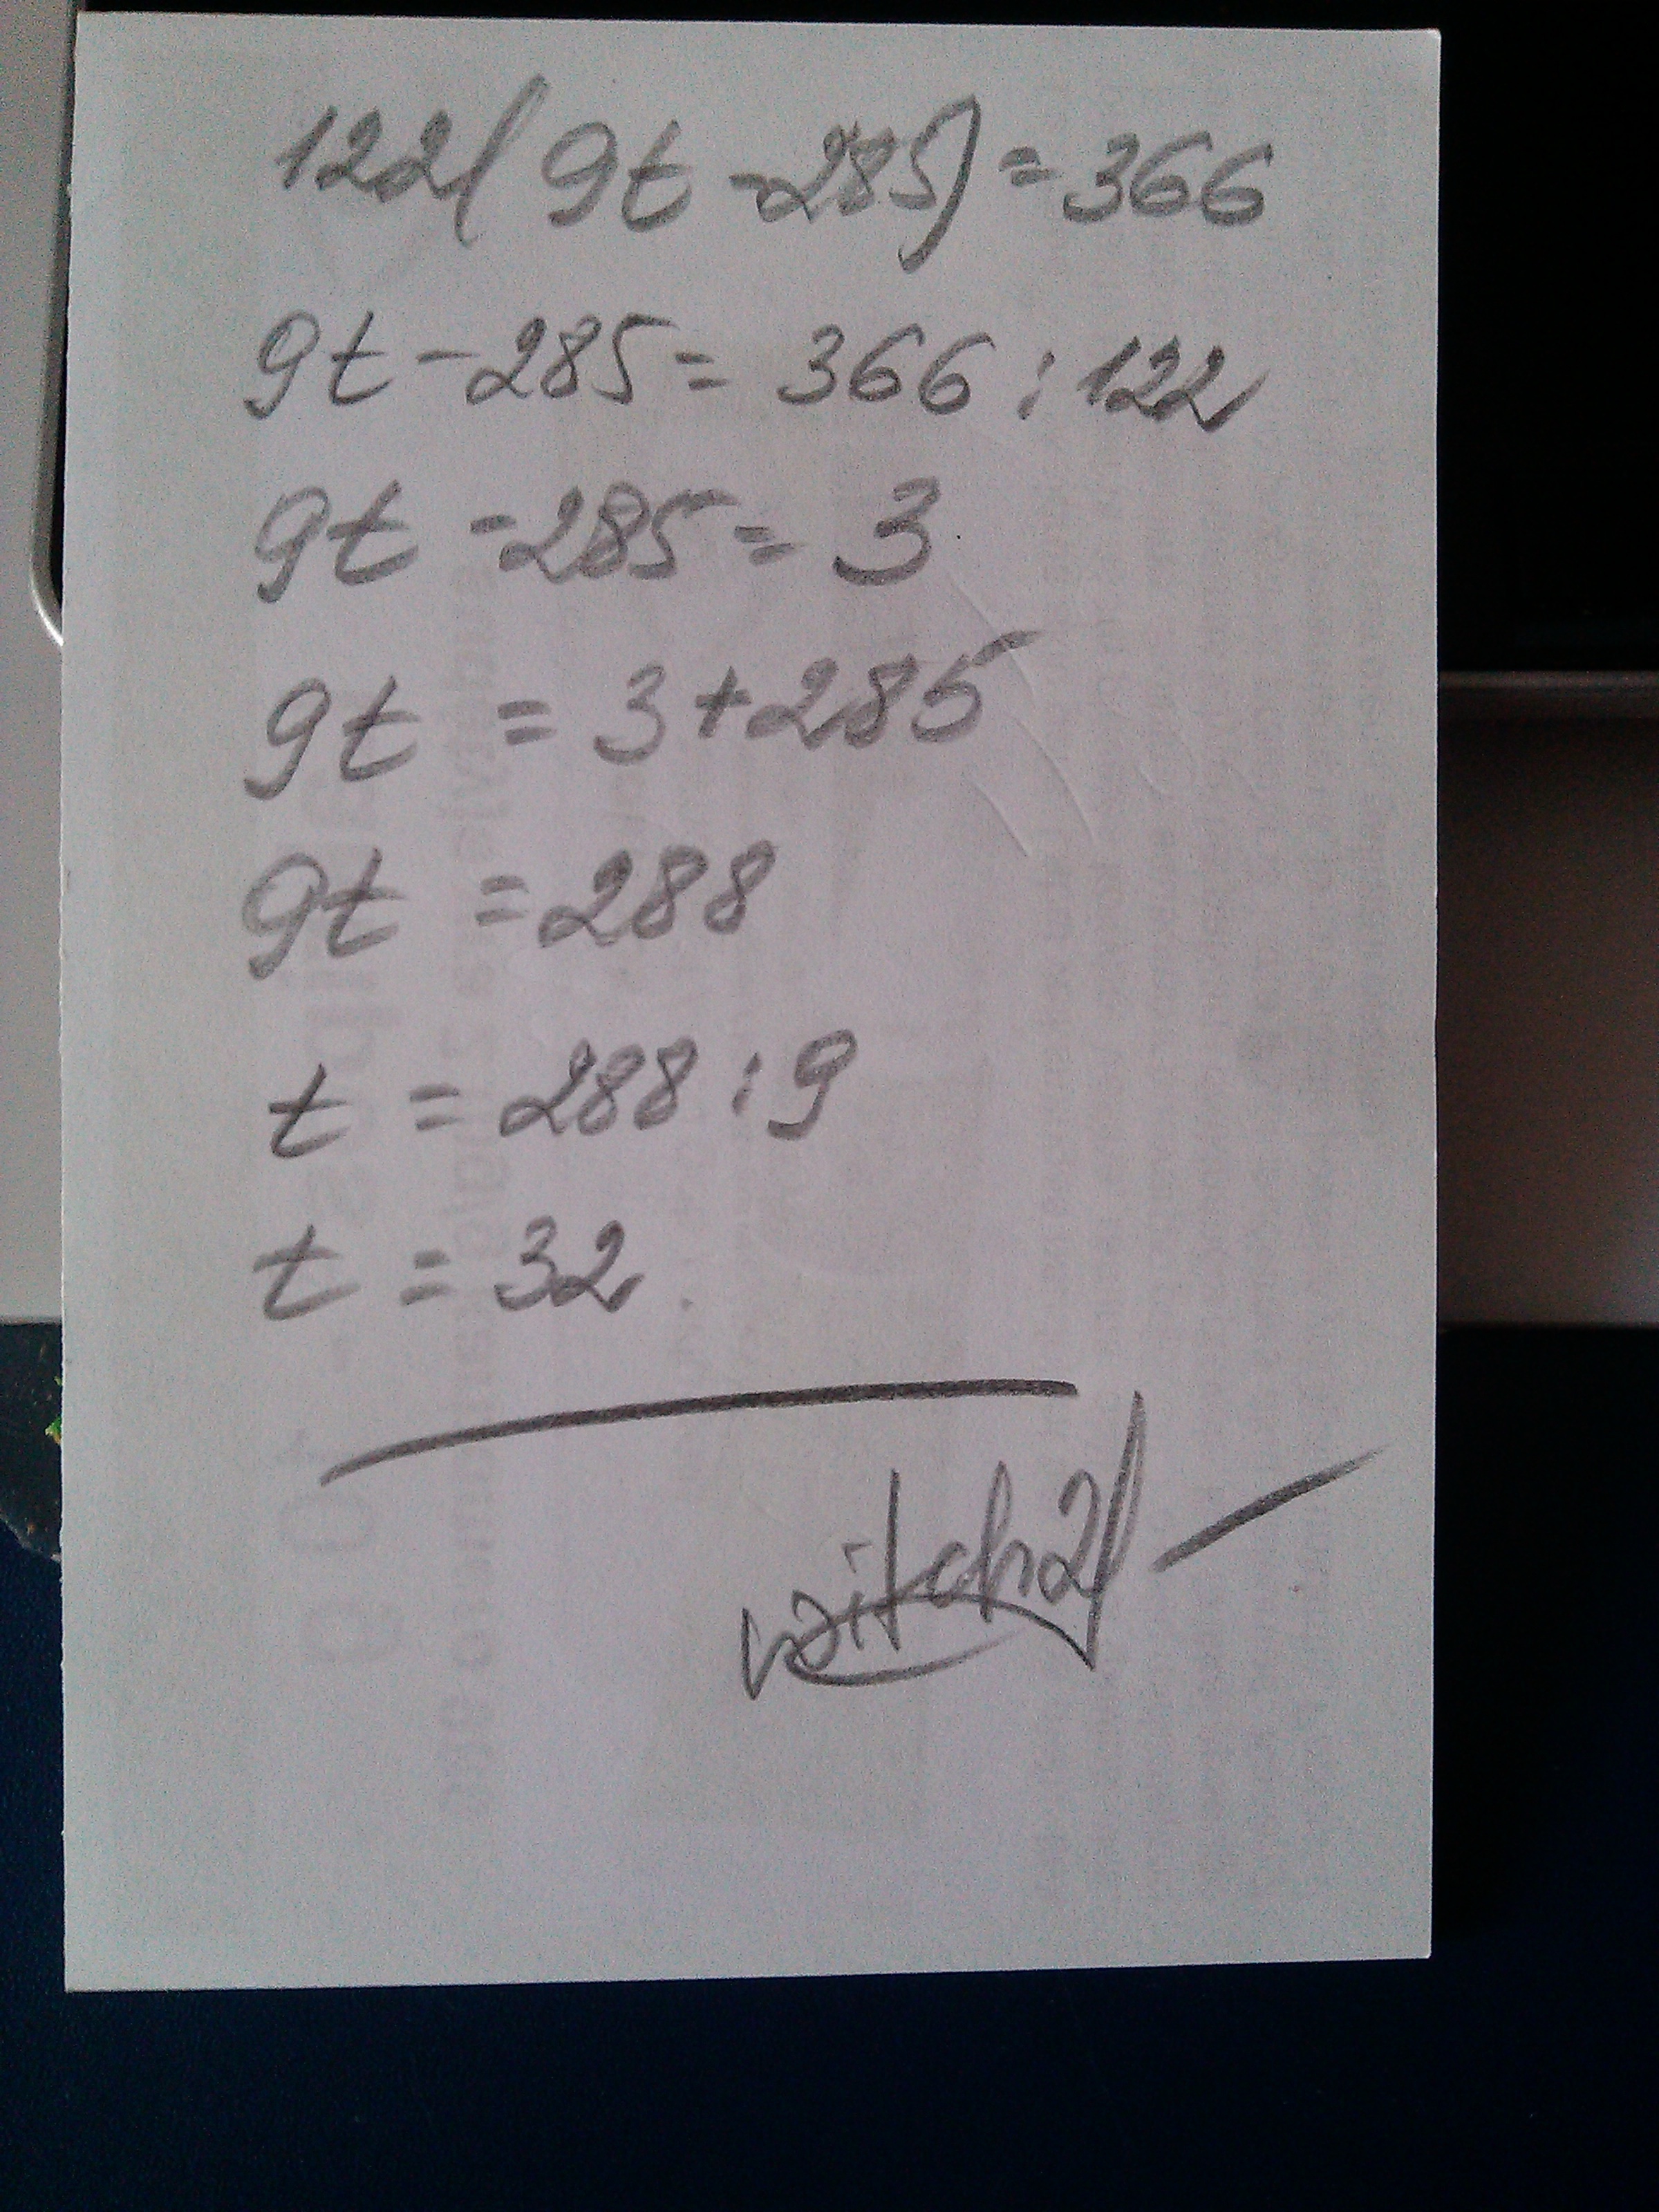 122(9t-285)=366
9t-285=366:122
9t-285=3
9t=3+285
9t=288
t=288:9
t=32
witch21